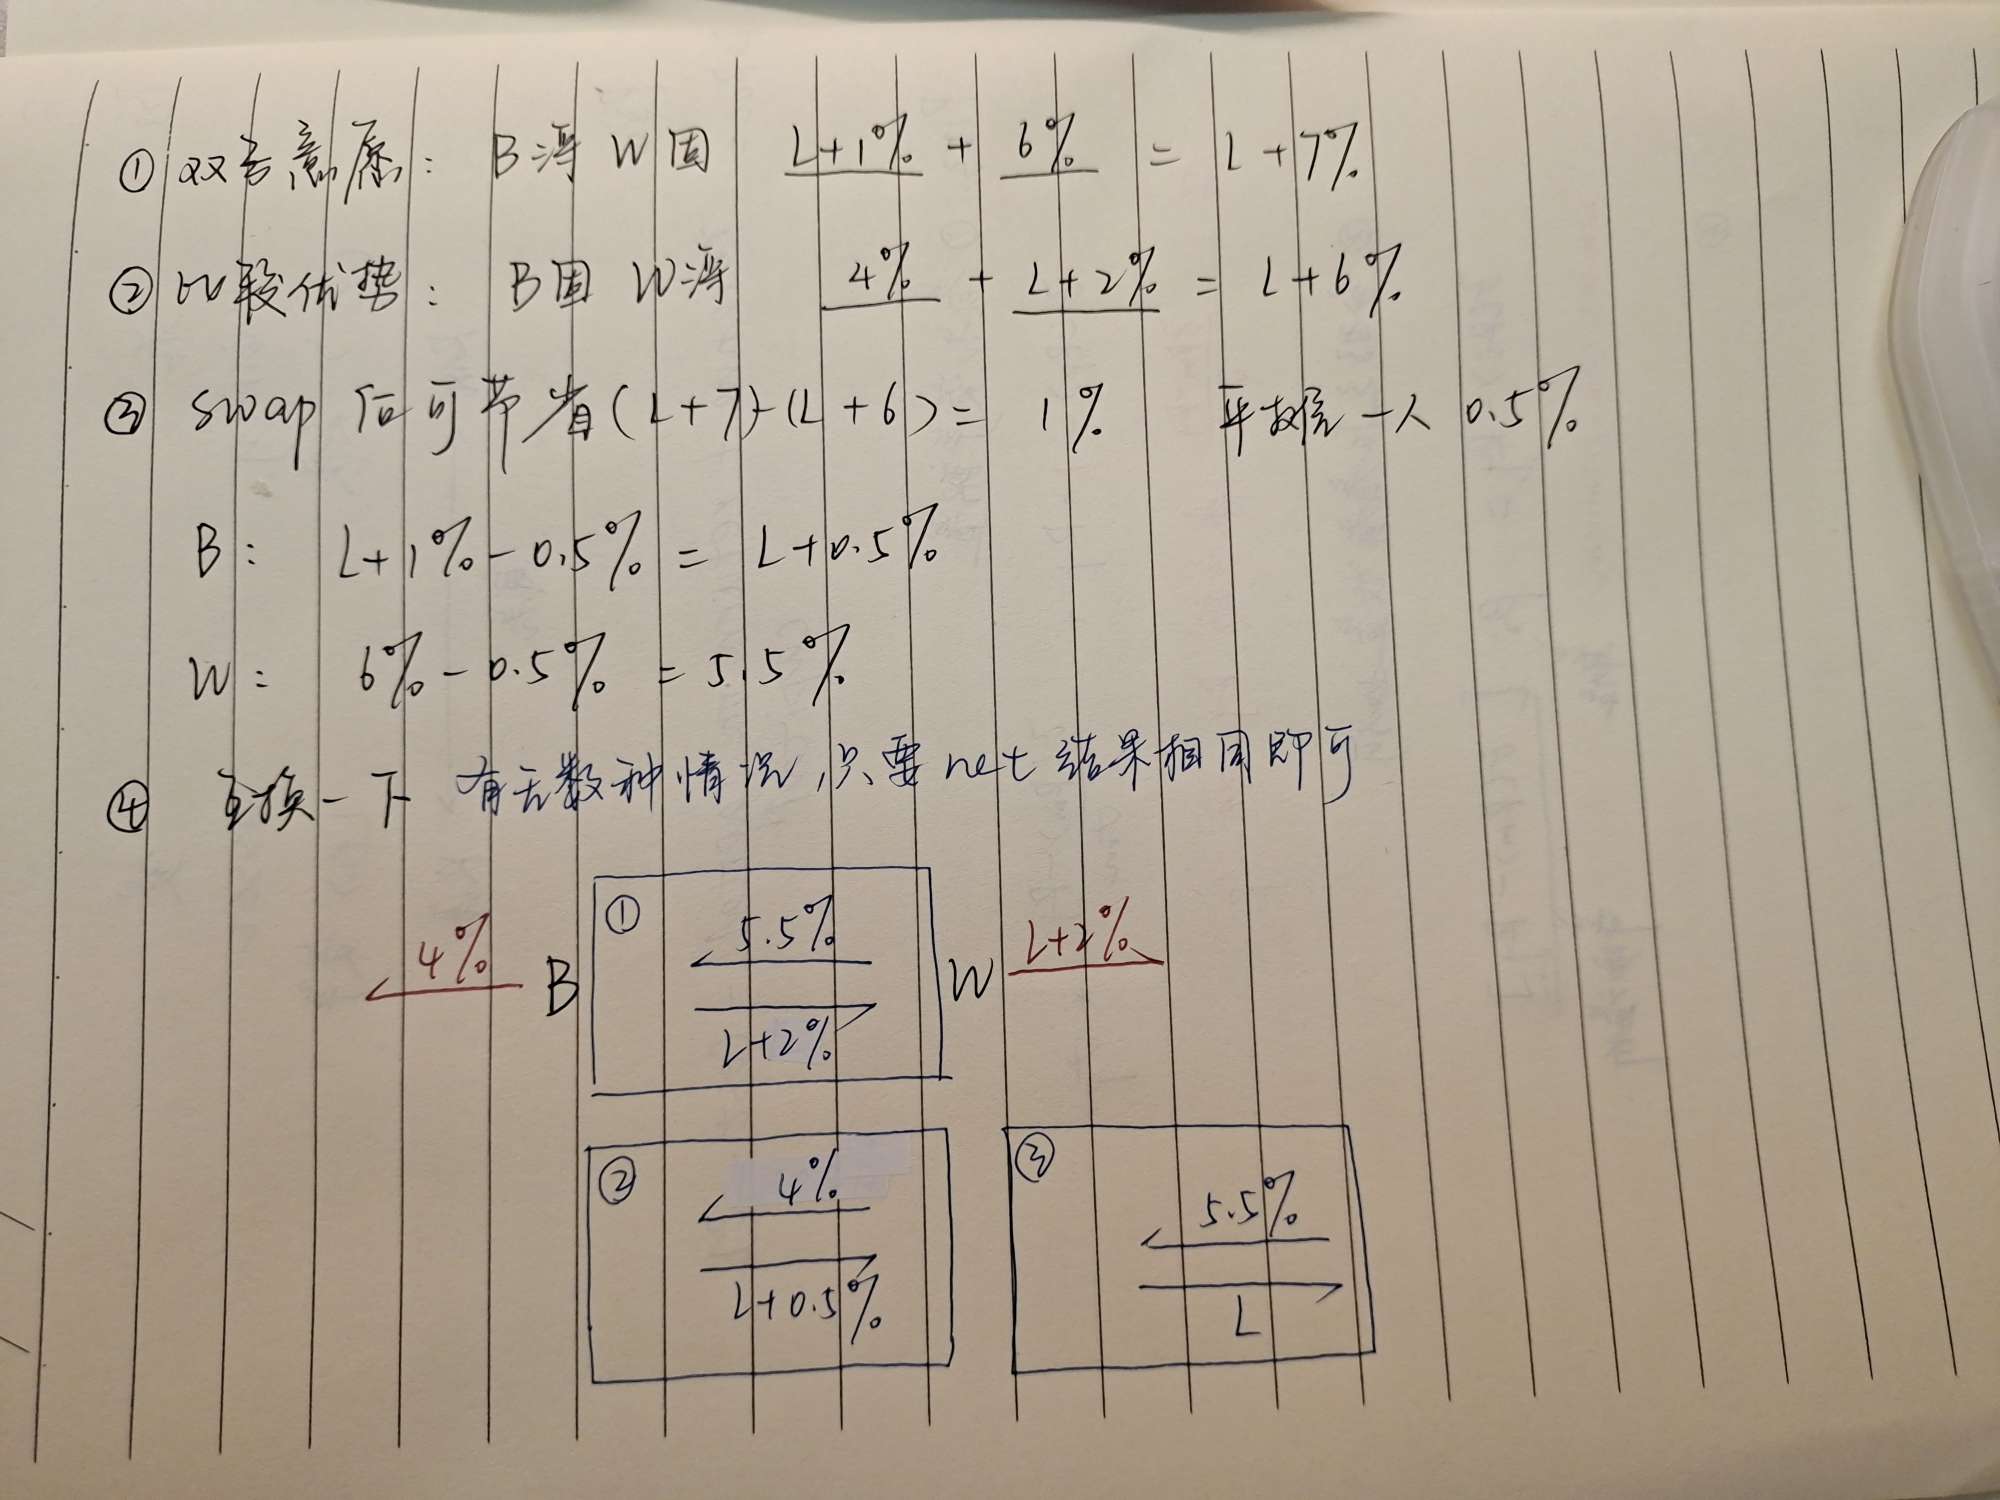 ① 双方意愿: B浮 W固 L+1% + 6% = L+7%
② 比较优势: B固 W浮 4% + L+2% = L+6%
③ swap 后可节省(L+7)-(L+6)= 1% 平均一人 0.5%
B: L+1%-0.5% = L+0.5%
W: 6%-0.5% = 5.5%
④ 互换一下 有无数种情况,只要net结果相同即可
① 5.5% L+2%
4% B W
L+2%
② 4% ③ 5.5%
L+0.5% L